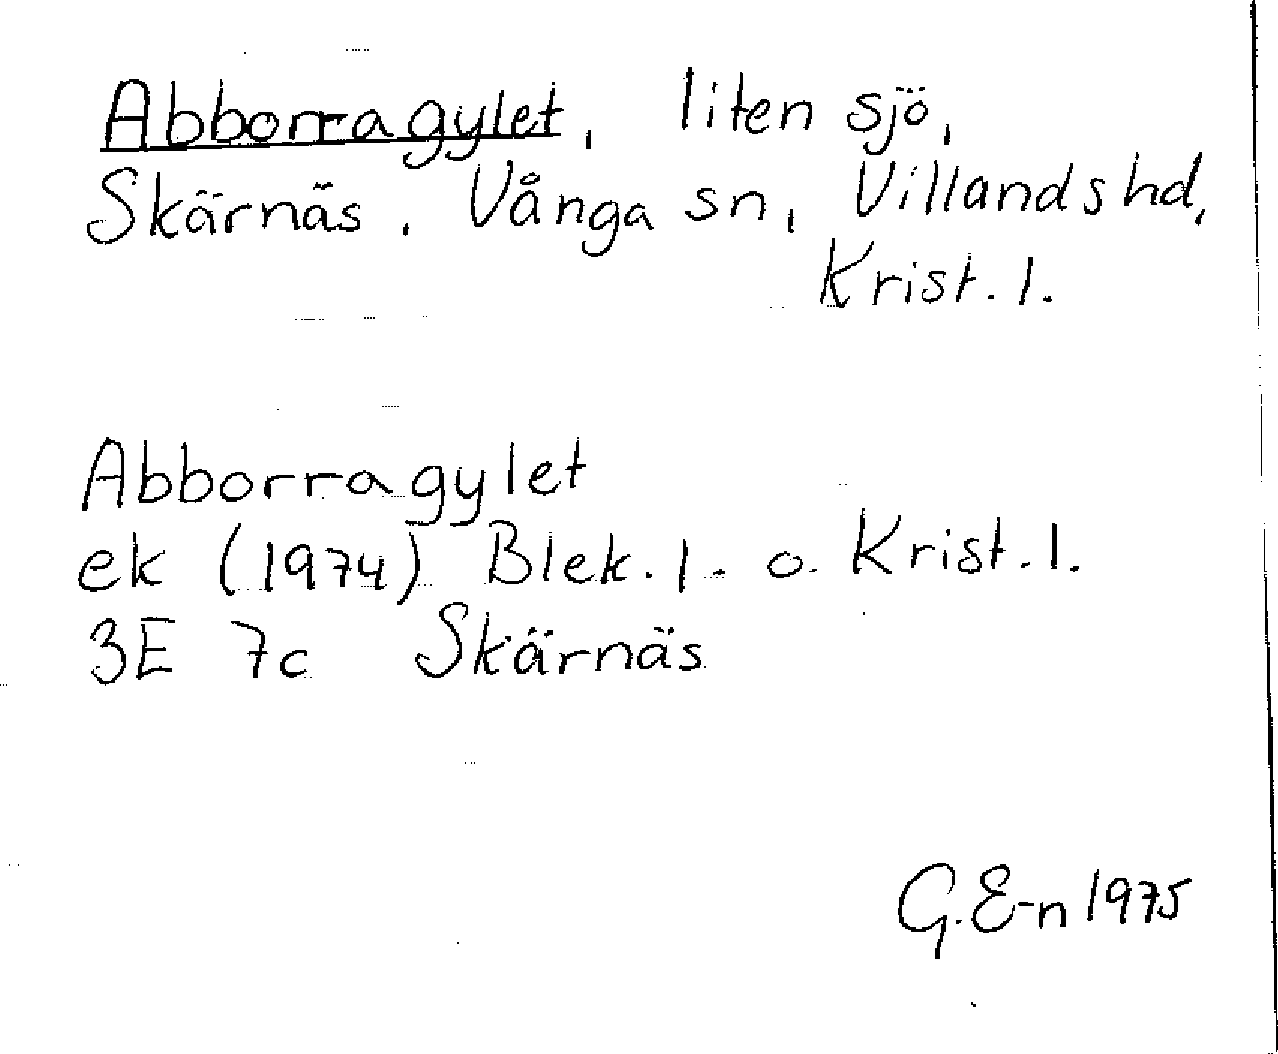 Abborragylet, liten sjö,
Skärnäs, Vånga sn, Villands hd,
Krist. l.
Abborragylet
ek (1974) Blek. l. o. Krist. l.
3E 7c Skärnäs
G. E-n 1975